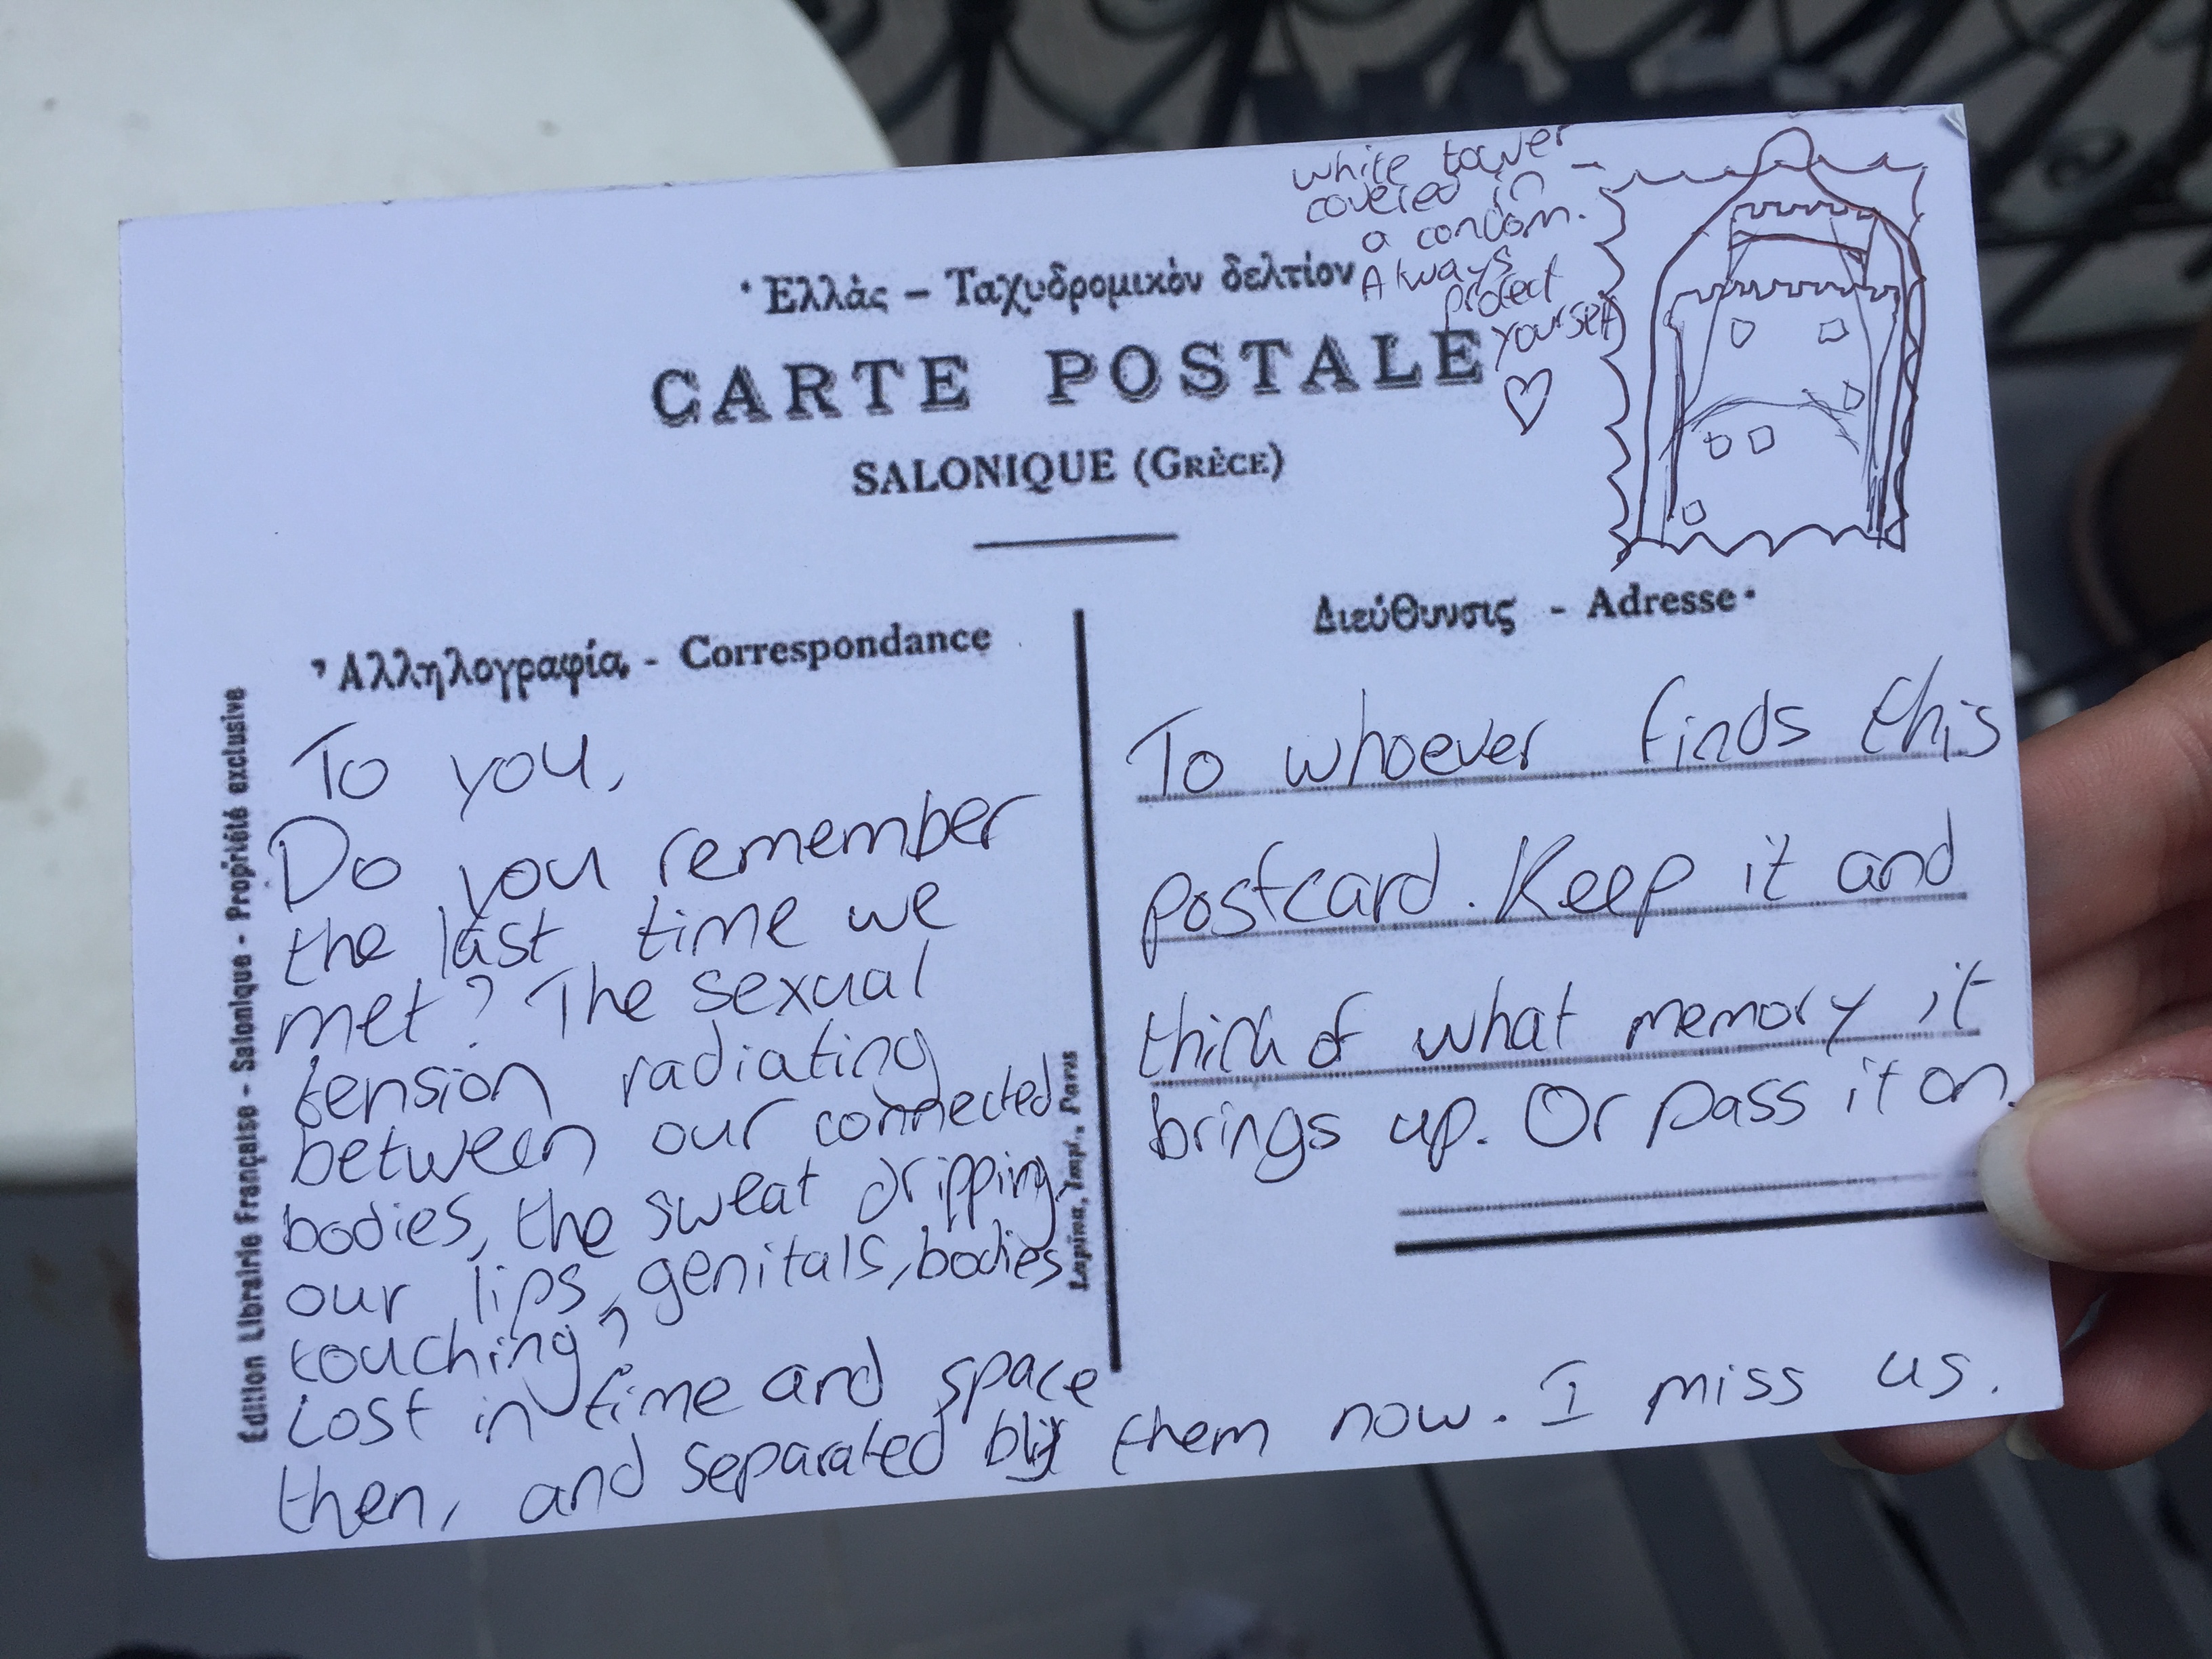 white tower
covered in
a condom.
Always
protect
yourself
Ἑλλὰς – Ταχυδρομικὸν δελτίον
CARTE POSTALE
SALONIQUE (GRÈCE)
Ἀλληλογραφία - Correspondance
To you,
Do you remember
the last time we
met? The sexual
tension radiating
between our connected
bodies, the sweat dripping,
our lips, genitals, bodies
touching?
Lost in time and space
then, and separated by them now. I miss us.
Διεύθυνσις - Adresse
To whoever finds this
postcard. Keep it and
think of what memory it
brings up. Or pass it on.
Edition Librairie Française - Salonique - Propriété exclusive
Lapina, Imp., Paris